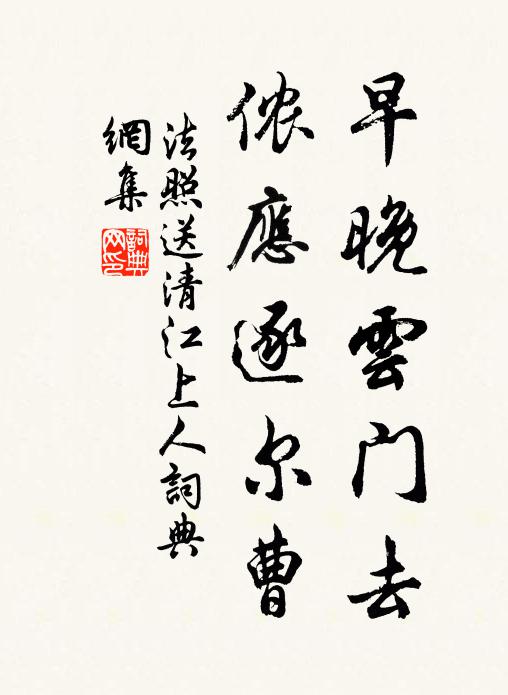 早晚雲门去
侬應逐尔曹
法照送清江上人詞典
網集
詞典
网印